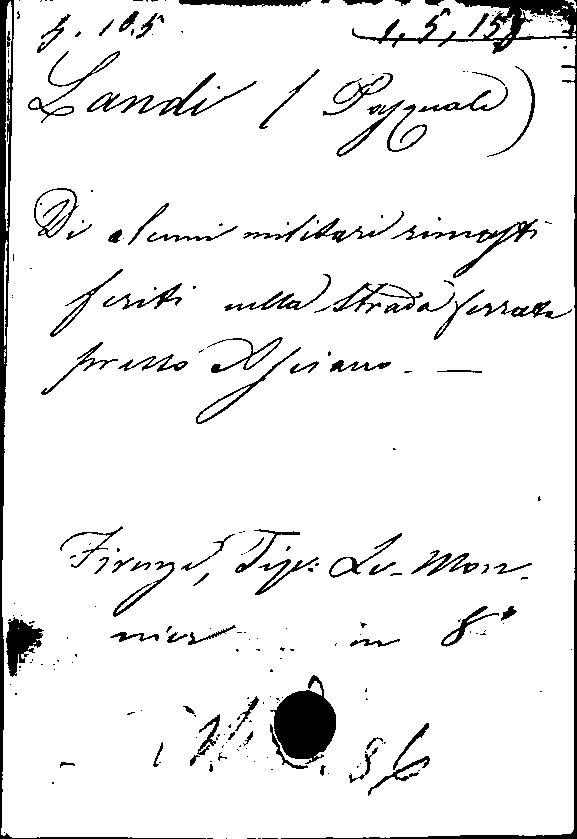 g. 10.5 1, 5, 158
Landi (Pasquale)
Di alcuni militari rimasti
feriti nella Strada ferrata
presso Asciano. —
Firenze, Tip: Le-Mon-
nier in 8°
86